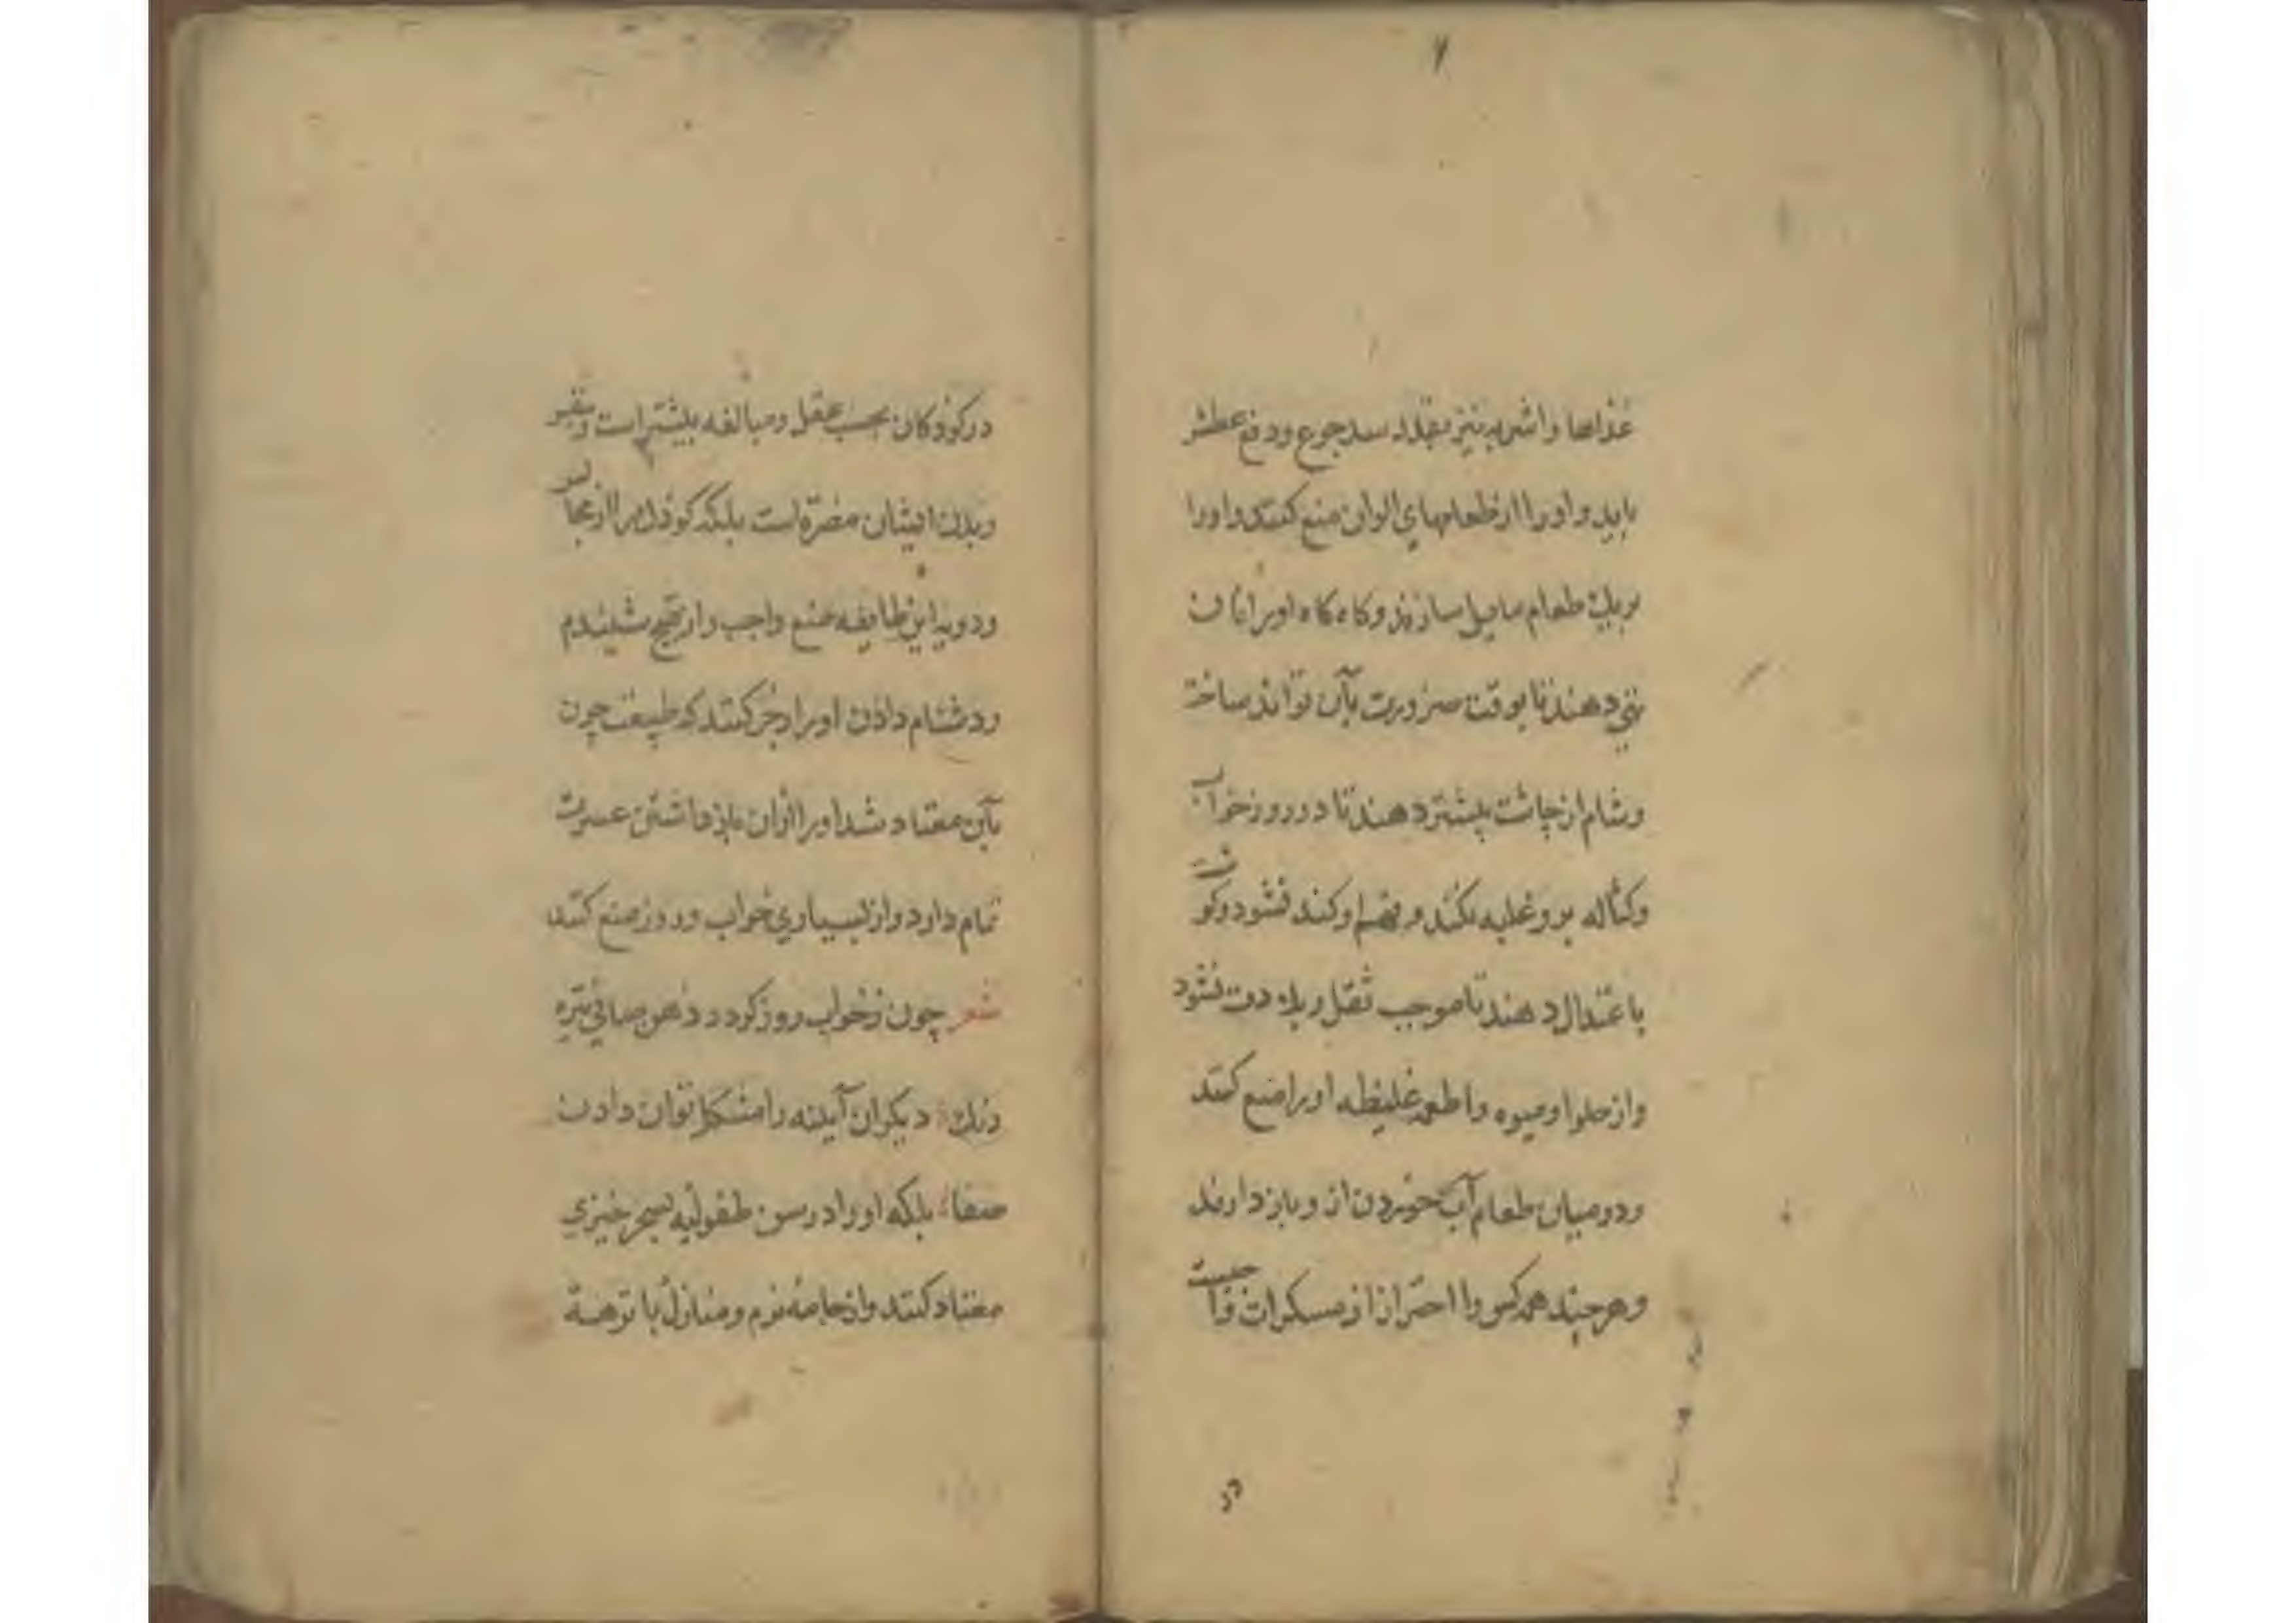 ٧
غذاها و اشربه نیز بقدر سد جوع و دفع عطش
باید و او را از طعامهای الوان منع کنند و او را
بریك طعام مایل سازند و کاه کاه او را نان
تهی دهند تا بوقت ضرورت بآن تواند ساخت
و شام از چاشت بیشتر دهند تا در روز خواب
و کساله برو غلبه نکند و فهم او کند نشود و کوشت
باعتدال دهند تا موجب ثقل و بلادت نشود
و از حلوا و میوه و اطعمه غلیظه او را منع کنند
و در میان طعام آب خوردن ازو باز دارند
و هر چند همه کس را احتراز از مسکرات واجبست
در
در کودکان بحسب عقل و مبالغه بیشتر است و بنفس
و بدن ایشان مضرة است بلکه کودك را از مجالس
و دوید این طایفه منع واجب و از قبیح شنیدم
و دشنام دادن او را زجر کنند که طبیعت چون
بآن معتاد شد او را ازان باز داشتن عسرت
تمام دارد و از بسیاری خواب و روز منع کنند
شعر چون ز خواب روز کردد ذهن صافی تیره
رنك دیکران آینه را مشکل توان دادن
صفا بلکه او را در سن طفولیه بسحر خیزی
معتاد کنند و از جامه نرم و منازل با توهمة